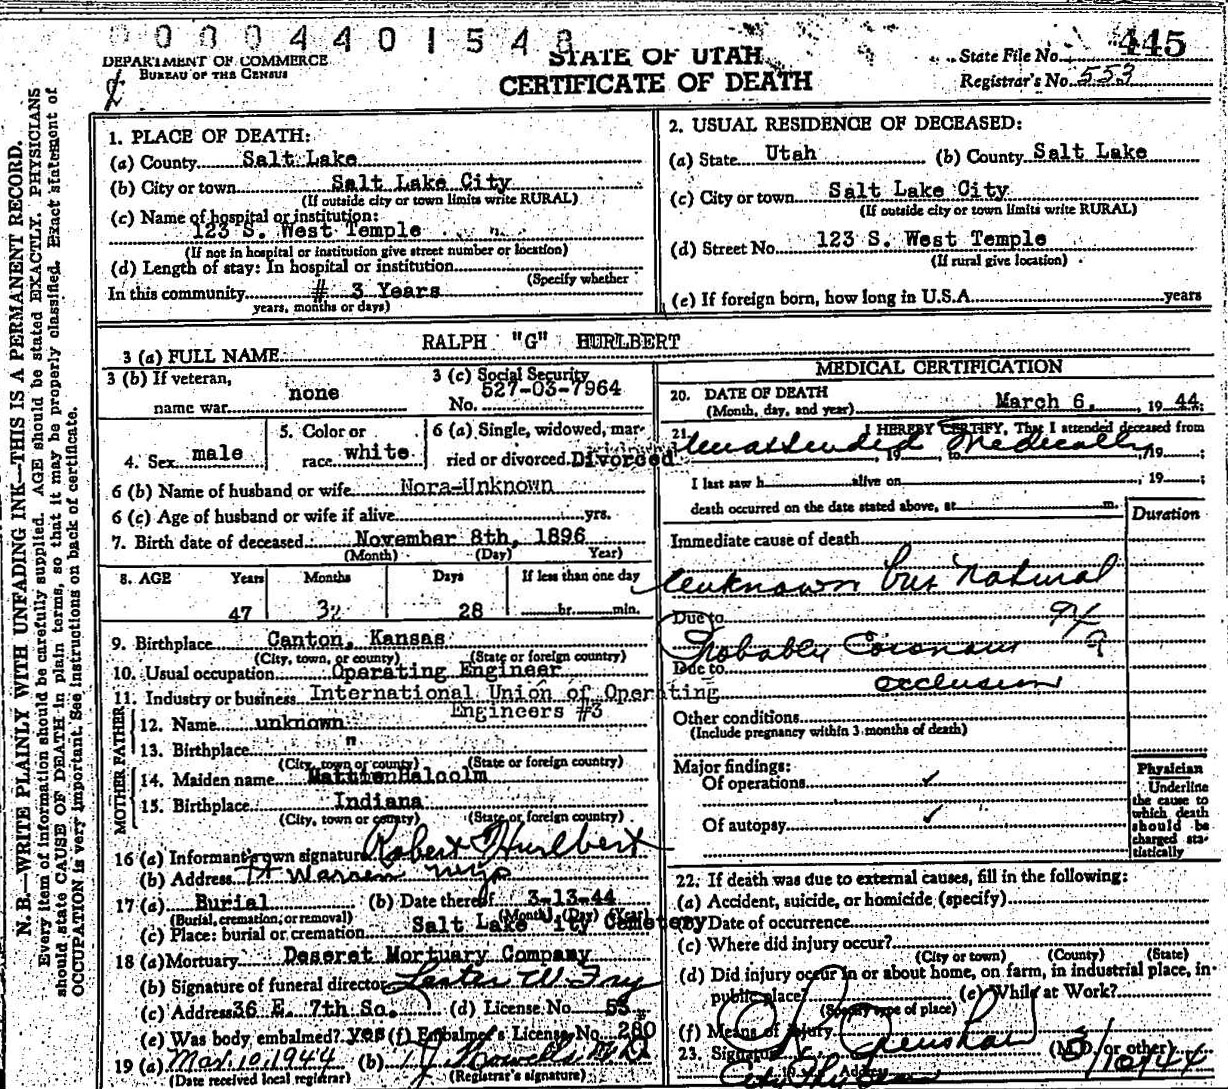 0 0 0 4 4 0 1 5 4 8
DEPARTMENT OF COMMERCE
BUREAU OF THE CENSUS
STATE OF UTAH
CERTIFICATE OF DEATH
State File No. 445
Registrar's No. 553
N. B.—WRITE PLAINLY WITH UNFADING INK—THIS IS A PERMANENT RECORD.
Every item of information should be carefully supplied. AGE should be stated EXACTLY. PHYSICIANS
should state CAUSE OF DEATH in plain terms, so that it may be properly classified. Exact statement of
OCCUPATION is very important. See instructions on back of certificate.
1. PLACE OF DEATH:
(a) County Salt Lake
(b) City or town Salt Lake City
(If outside city or town limits write RURAL)
(c) Name of hospital or institution:
123 S. West Temple
(If not in hospital or institution give street number or location)
(d) Length of stay: In hospital or institution
(Specify whether
In this community # 3 Years
years, months or days)
2. USUAL RESIDENCE OF DECEASED:
(a) State Utah (b) County Salt Lake
(c) City or town Salt Lake City
(If outside city or town limits write RURAL)
(d) Street No. 123 S. West Temple
(If rural give location)
(e) If foreign born, how long in U.S.A. years
3 (a) FULL NAME RALPH "G" HURLBERT
3 (b) If veteran, name war none
3 (c) Social Security No. 527-03-7964
4. Sex male
5. Color or race white
6 (a) Single, widowed, married or divorced. Divorced
6 (b) Name of husband or wife Nora-Unknown
6 (c) Age of husband or wife if alive yrs.
7. Birth date of deceased November 8th, 1896
(Month) (Day) Year)
8. AGE Years Months Days If less than one day
47 3 28 hr. min.
9. Birthplace Canton, Kansas
(City, town, or county) (State or foreign country)
10. Usual occupation Operating Engineer
11. Industry or business International Union of Operating
Engineers #3
FATHER
12. Name unknown
13. Birthplace "
(City, town or county) (State or foreign country)
MOTHER
14. Maiden name Malcolm
15. Birthplace Indiana
(City, town or county) (State or foreign country)
16 (a) Informant's own signature Robert Hurlbert
(b) Address Ft Warren Wyo
17 (a) Burial (b) Date thereof 3-13-44
(Burial, cremation, or removal) (Month) (Day) (Year)
(c) Place: burial or cremation Salt Lake ity Cemetery
18 (a) Mortuary Deseret Mortuary Company
(b) Signature of funeral director Lester W Fry
(c) Address 36 E. 7th So. (d) License No. 53
(e) Was body embalmed? yes (f) Embalmer's License No. 280
19 (a) Mar. 10, 1944 (b)
(Date received local registrar) (Registrar's signature)
MEDICAL CERTIFICATION
20. DATE OF DEATH
(Month, day, and year) March 6, 1944
21. I HEREBY CERTIFY, That I attended deceased from
Unattended Medically
19 to , 19 ;
I last saw h alive on , 19 ;
death occurred on the date stated above, at m.
Duration
Immediate cause of death
Unknown but natural
Due to
Probably Coronary
Due to
occlusion
Other conditions
(Include pregnancy within 3 months of death)
Major findings:
Of operations ✓
Of autopsy ✓
Physician
Underline
the cause to
which death
should be
charged sta-
tistically
22. If death was due to external causes, fill in the following:
(a) Accident, suicide, or homicide (specify)
Date of occurrence
(c) Where did injury occur?
(City or town) (County) (State)
(d) Did injury occur in or about home, on farm, in industrial place, in
public place (e) While at Work?
(Specify type of place)
(f) Means of injury
23. Signature Crenshaw (M.D. or other)
Address 3/10/44